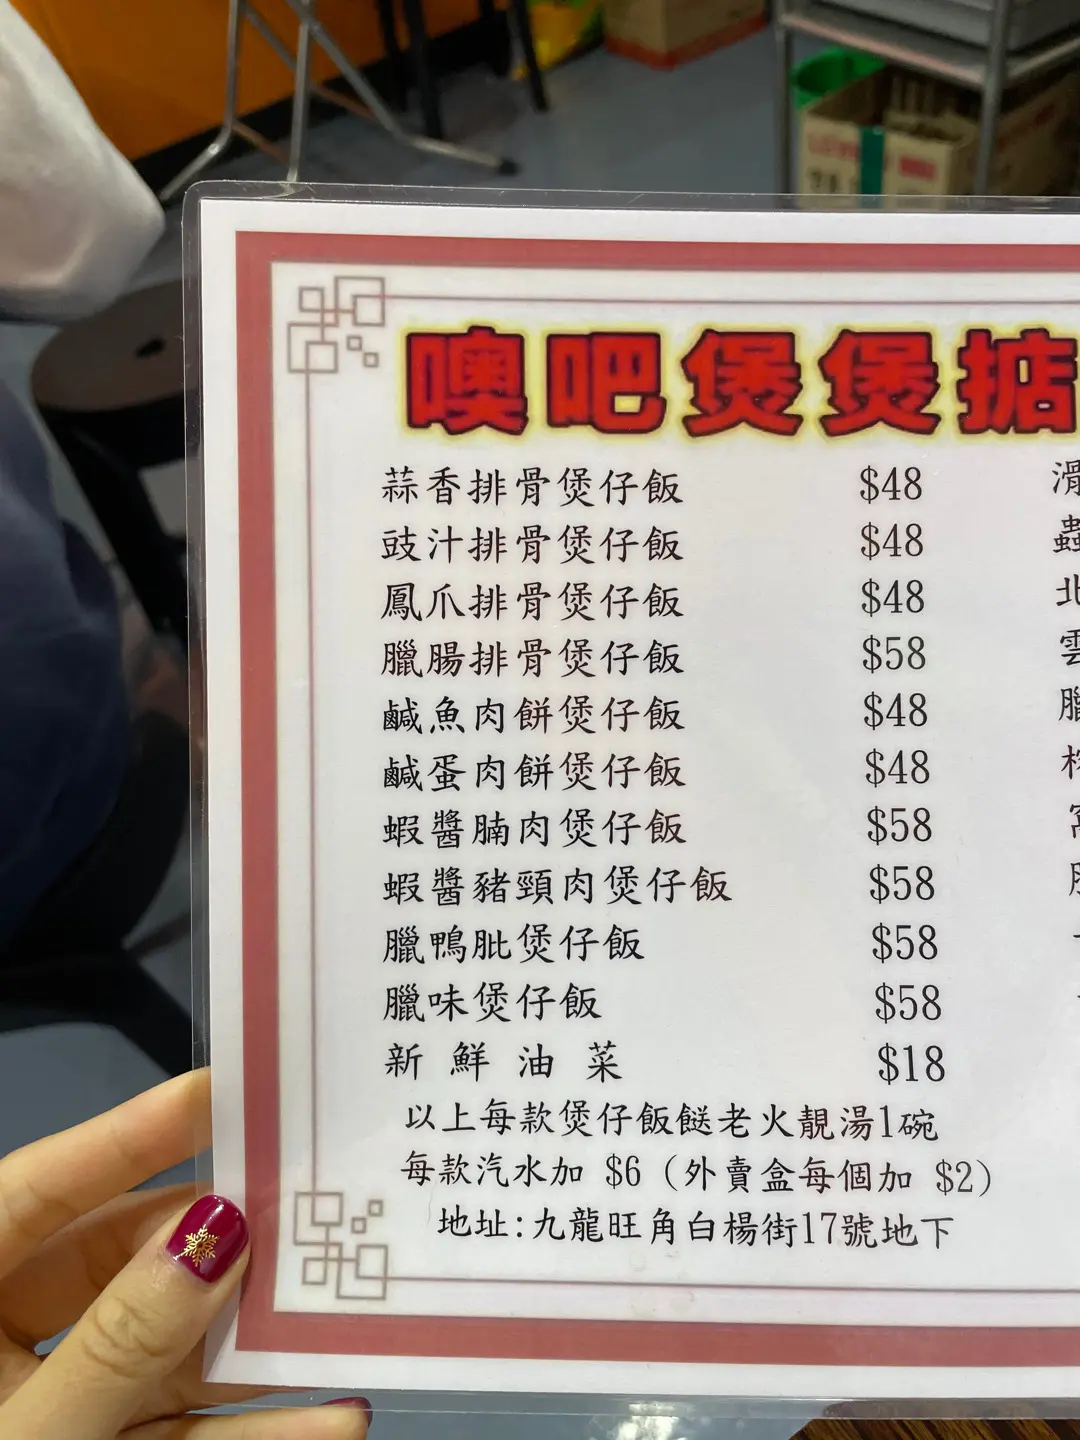 噢吧煲煲掂
蒜香排骨煲仔飯 $48
豉汁排骨煲仔飯 $48
鳳爪排骨煲仔飯 $48
臘腸排骨煲仔飯 $58
鹹魚肉餅煲仔飯 $48
鹹蛋肉餅煲仔飯 $48
蝦醬腩肉煲仔飯 $58
蝦醬豬頸肉煲仔飯 $58
臘鴨肶煲仔飯 $58
臘味煲仔飯 $58
新鮮油菜 $18
以上每款煲仔飯餸老火靚湯1碗
每款汽水加 $6 (外賣盒每個加 $2)
地址:九龍旺角白楊街17號地下
北
雲
臘